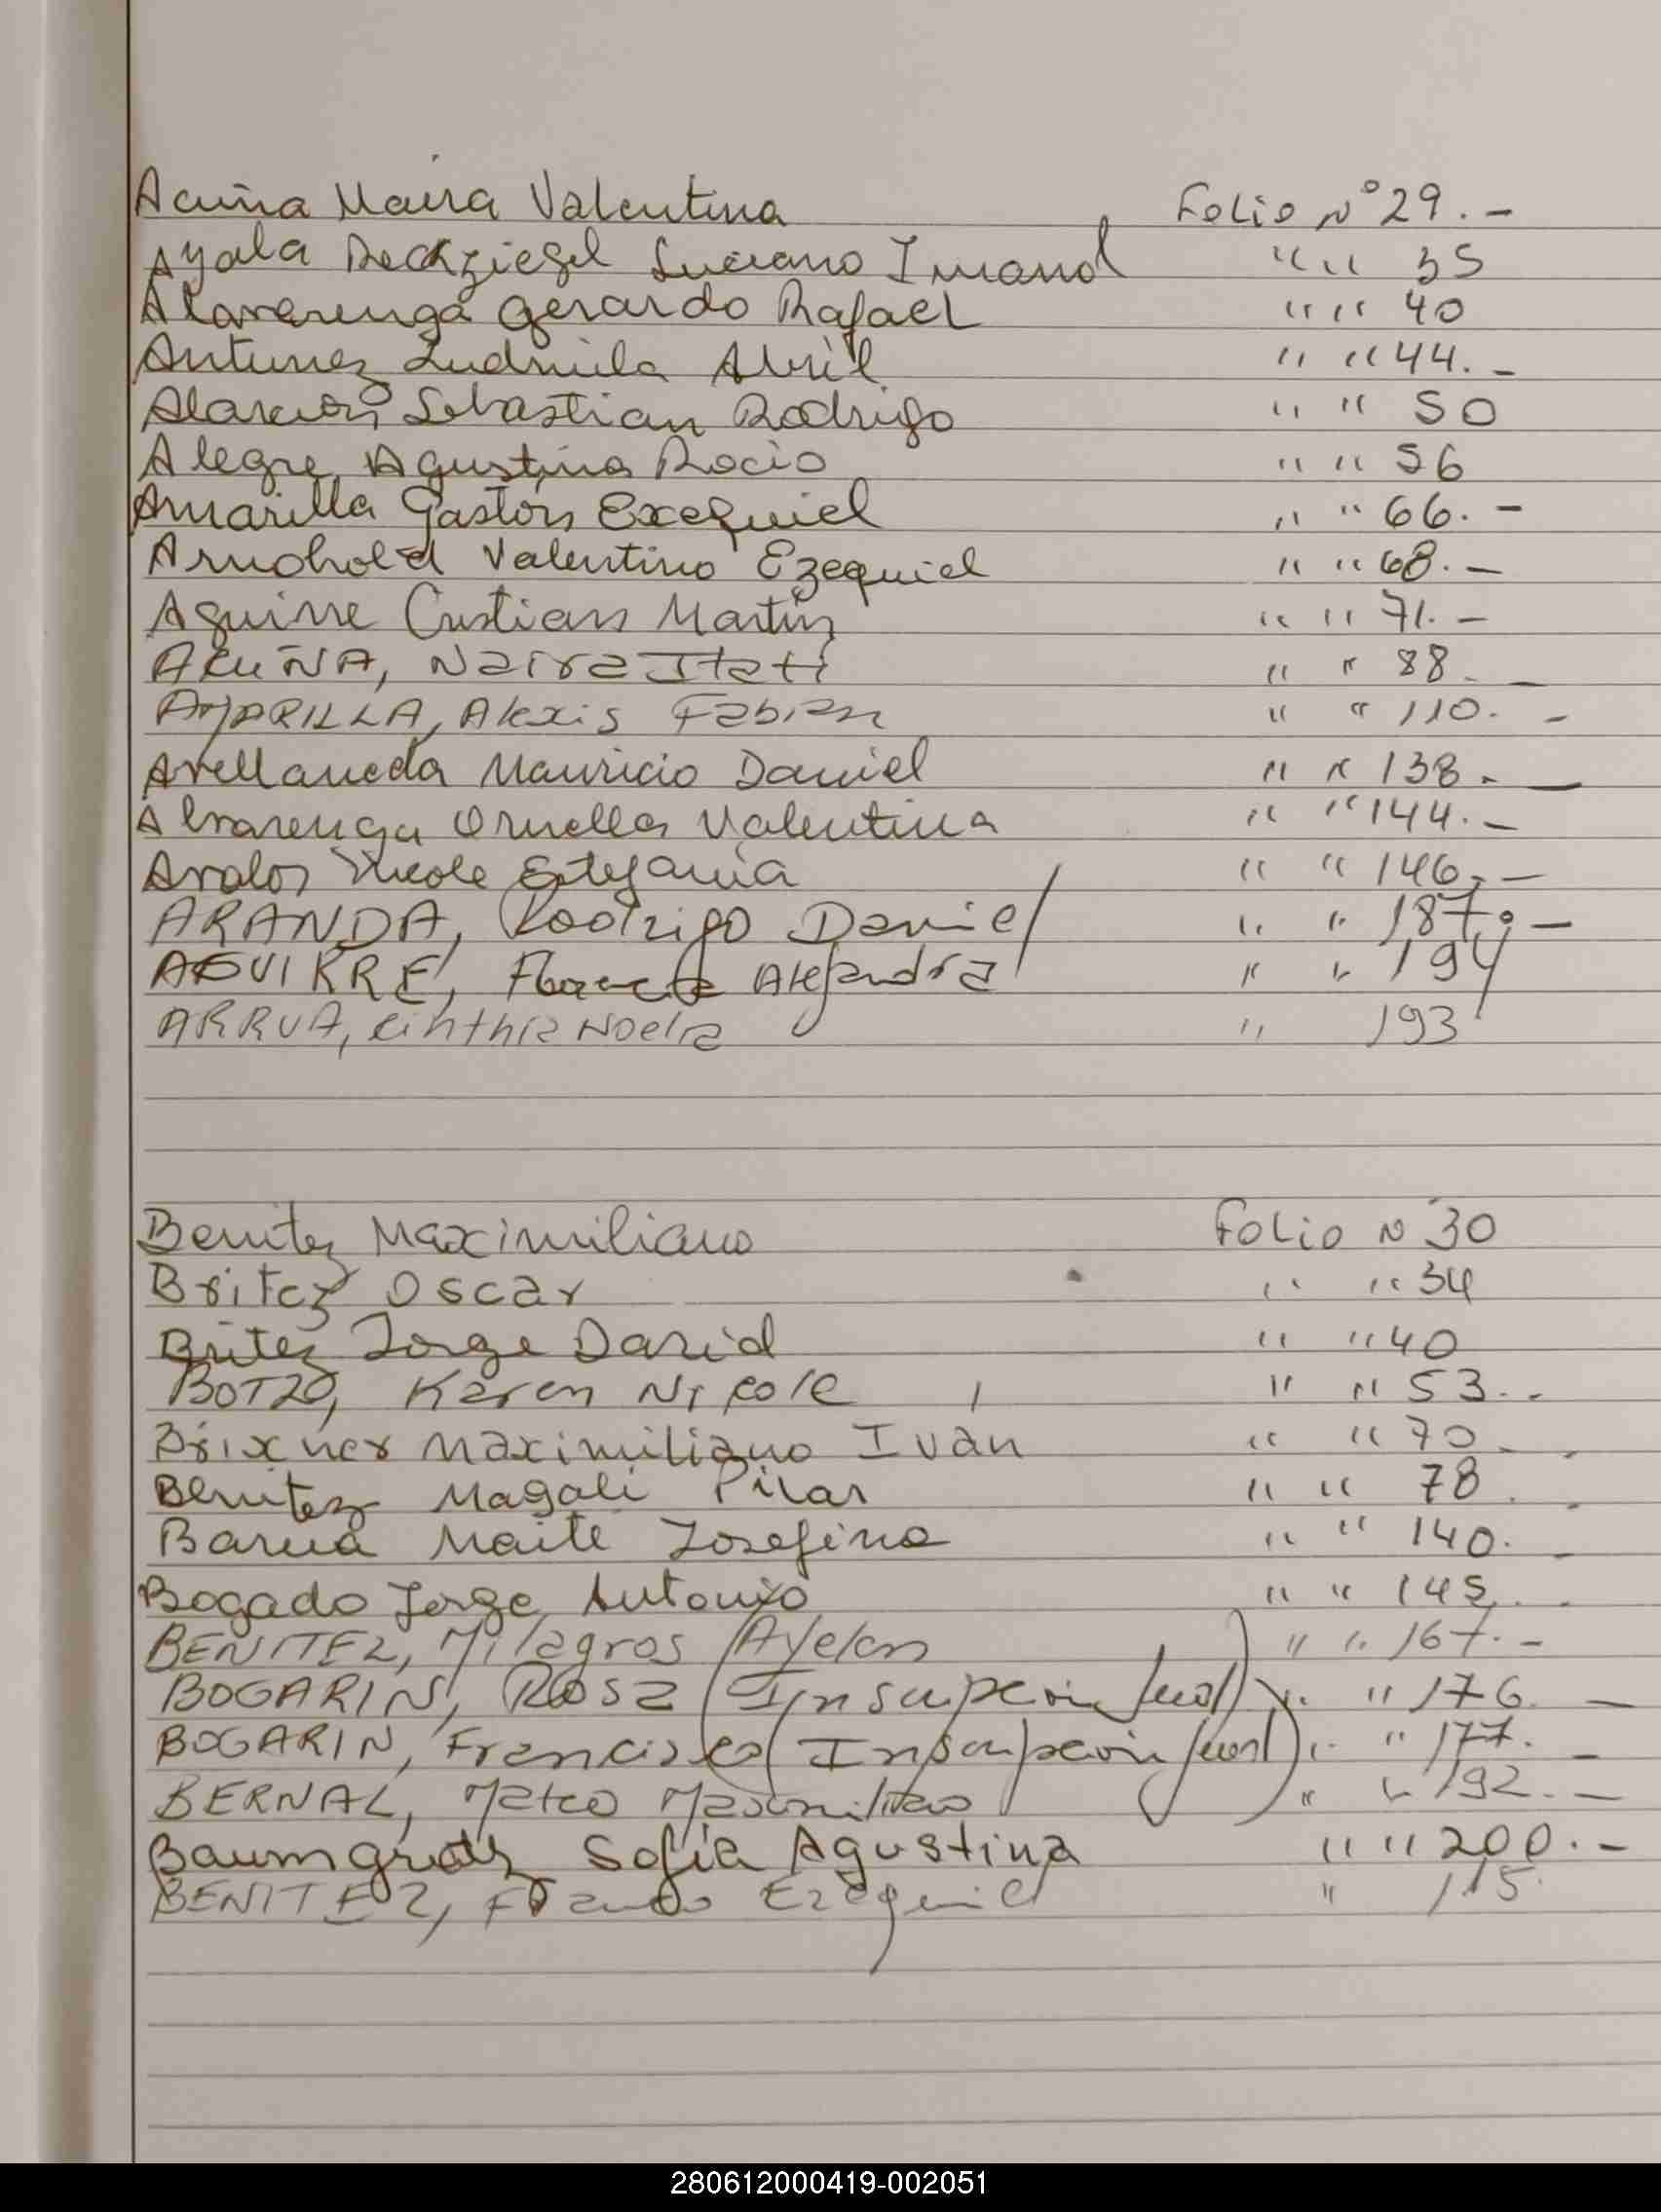 Acuña Maira Valentina Folio N° 29.-
Ayala Deckziegel Luciano Imanol " " 35
Alavarenga Gerardo Rafael " " 40
Antunez Ludmila Abril " " 44.-
Alarcón Sebastian Rodrigo " " 50
Alegre Agustina Rocio " " 56
Amarilla Gastón Exequiel " " 66.-
Arnohold Valentino Ezequiel " " 68.-
Aguirre Cristian Martín " " 71.-
ACUÑA, Naira Itatí " " 88.-
AMARILLA, Alexis Fabian " " 110.-
Avellaneda Mauricio Daniel " " 138.-
Alvarenga Ornella Valentina " " 144.-
Avalos Nicole Estefanía " " 146.-
ARANDA, Rodrigo Daniel " " 187.-
AGUIRRE, Alejandra " " 194
ARRUA, Cinthia Noelia " 193
Benitez Maximiliano Folio N 30
Britez Oscar " " 34
Britez Jorge David " " 40
BOTZO, Karen Nicole " " 53.-
Brixner Maximiliano Ivan " " 70.-
Benitez Magali Pilar " " 78.-
Barua Maite Josefina " " 140.-
Bogado Jorge Antonio " " 145.-
BENITEZ, Milagros Ayelen " " 167.-
BOGARIN, Rosa (Inscripcion Jud) " " 176.-
BOGARIN, Francisco (Inscripcion Jud) " " 177.-
BERNAL, Mateo Maximiliano " " 192.-
Baumgratz Sofía Agustina " " 200.-
BENITEZ, Ezequiel " 115.
280612000419-002051